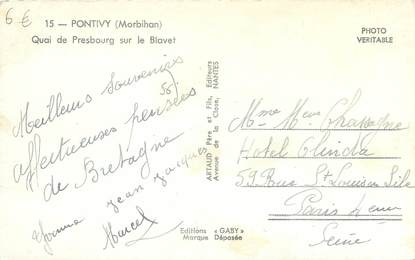 6 €
15 — PONTIVY (Morbihan)
Quai de Presbourg sur le Blavet
PHOTO
VERITABLE
Meilleurs Souvenirs
56
affectueuses pensées
de Bretagne
Jean Jacques
Yvonne
Marcel
ARTAUD Père et Fils, Editeurs
Avenue de la Close, NANTES
Editions « GABY »
Marque Déposée
Mme Mens
Hotel Olinda
59 Rue St Louis en l'ile
Paris 4eme
Seine